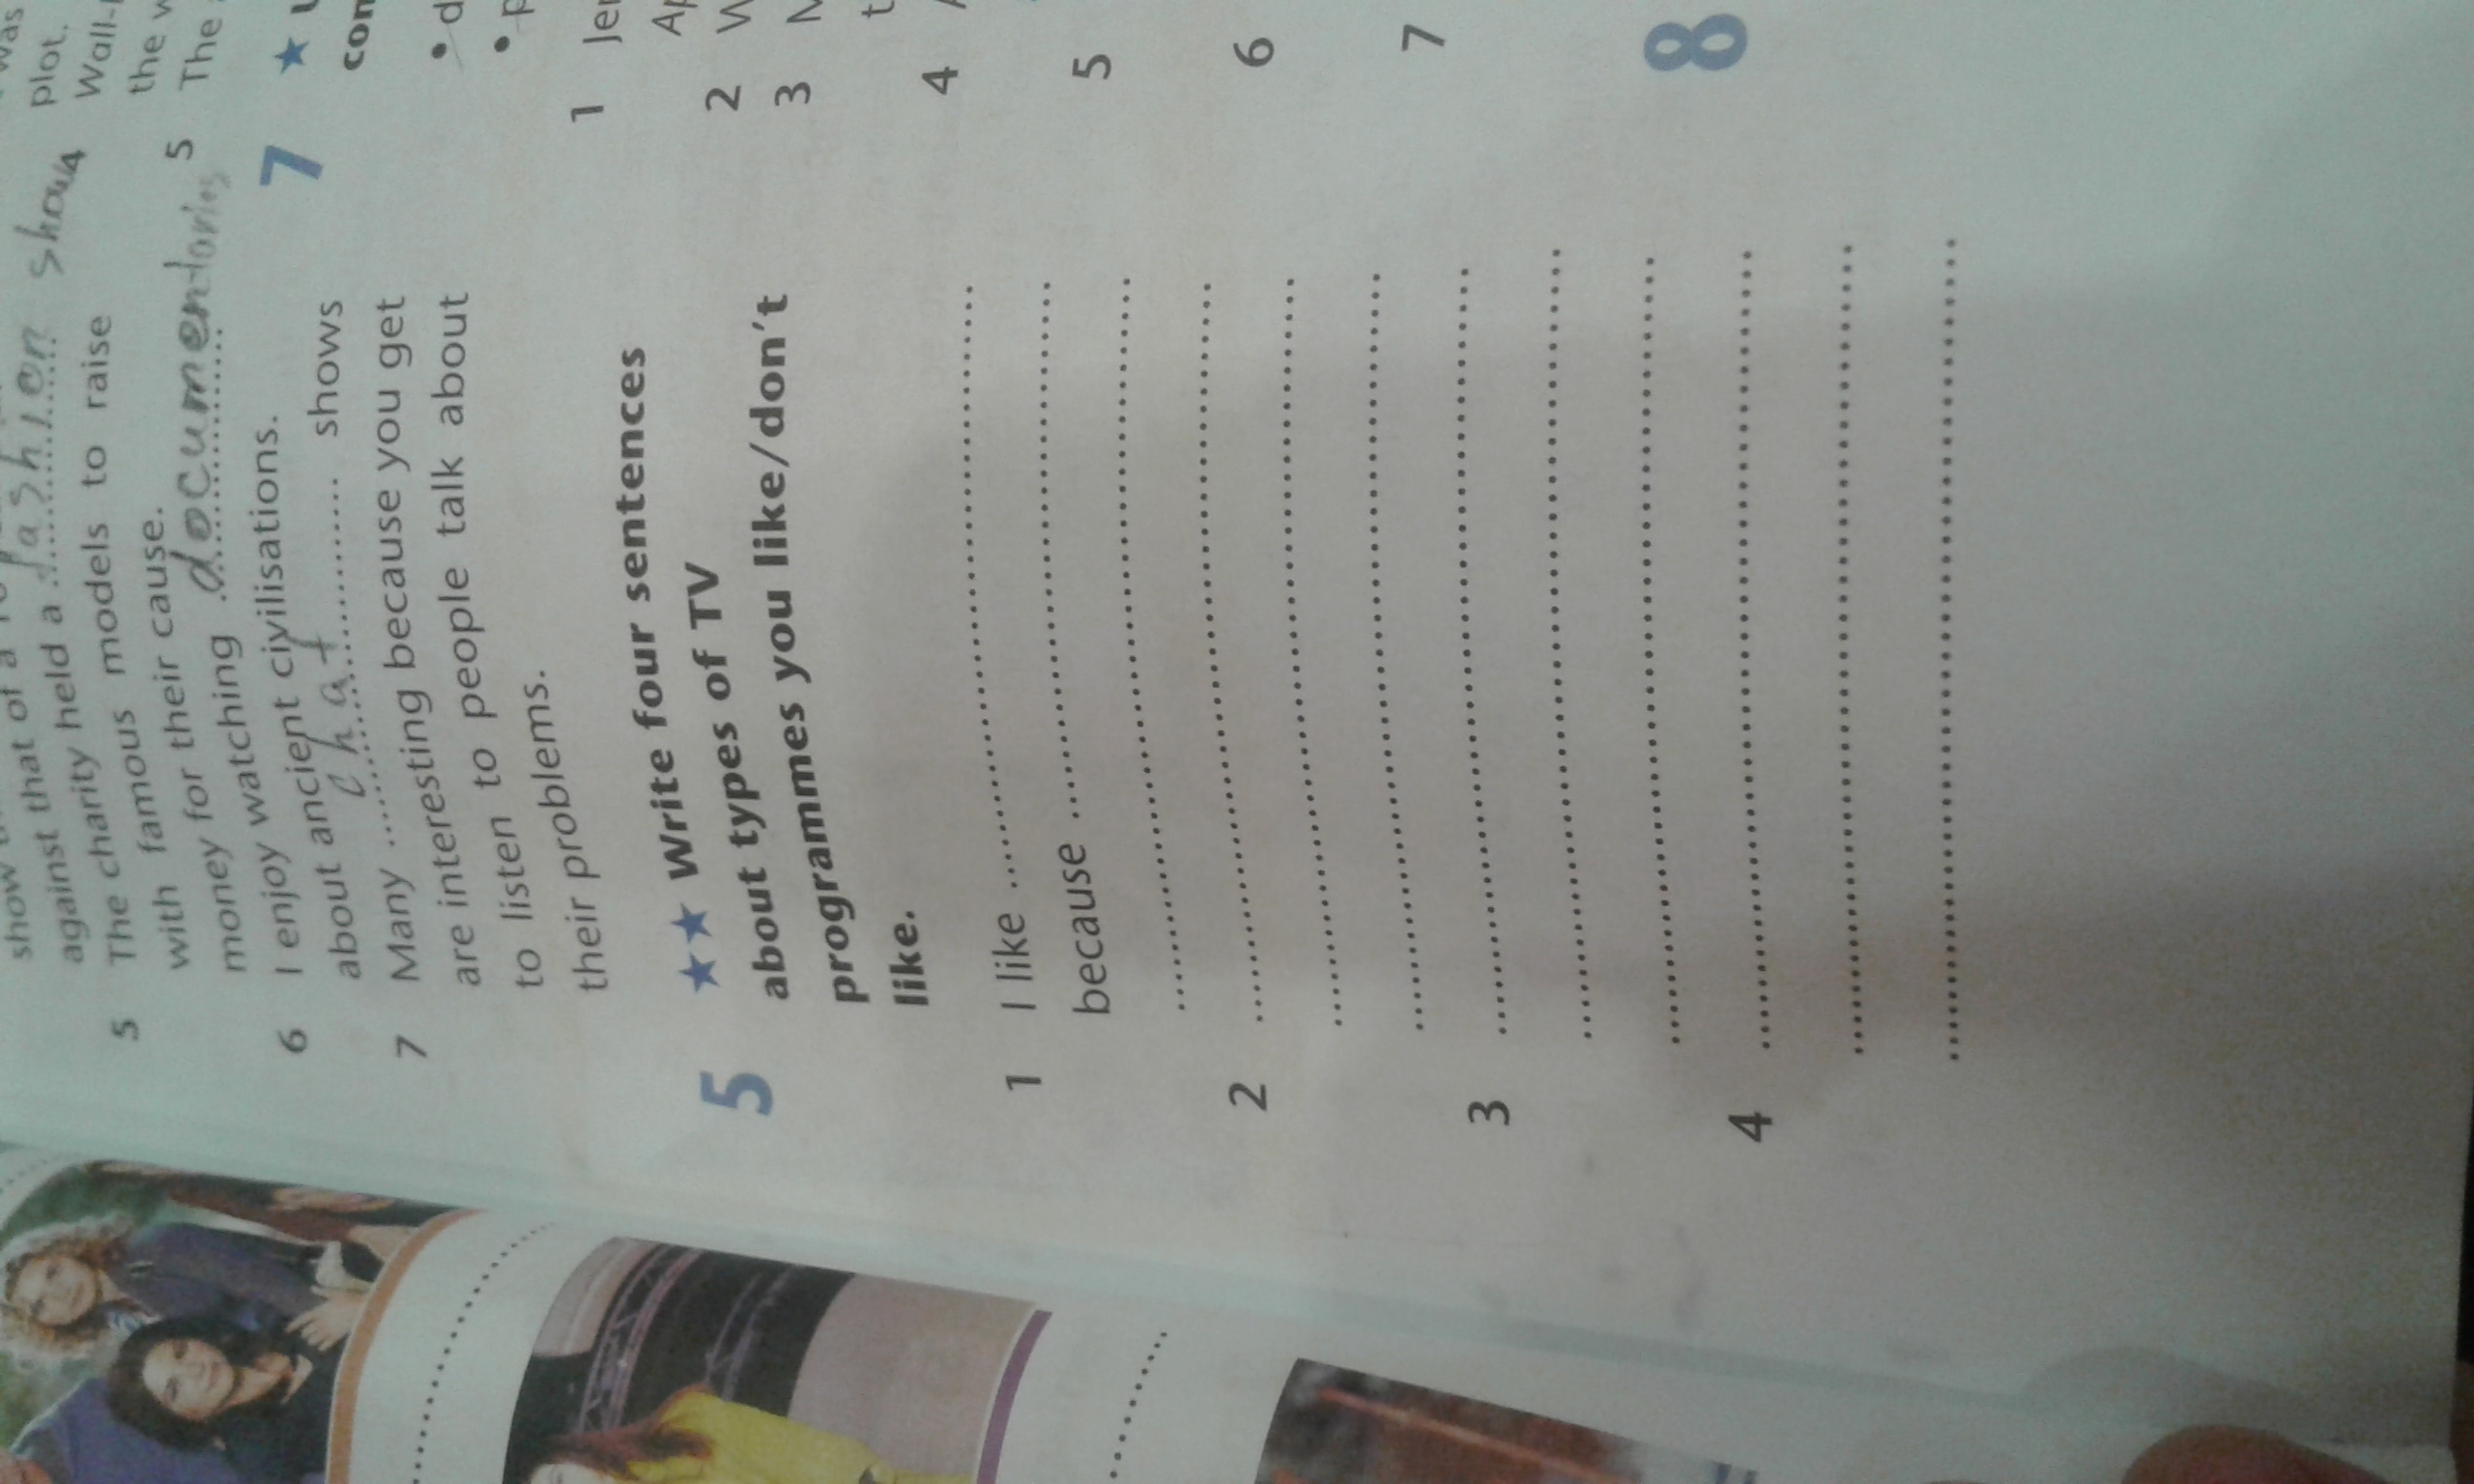 was
plot.
Wall-
the w
5 The
show that of a
against that of
5 The charity held a fashion show
with famous models to raise
money for their cause.
6 I enjoy watching documentaries
about ancient civilisations.
7 Many chat shows
are interesting because you get
to listen to people talk about
their problems.
5 ★★ Write four sentences
about types of TV
programmes you like/don't
like.
1 I like
because
2
3
4
7 ★
con
1 Jer
Ap
2 W
3
t
4
5
6
7
8